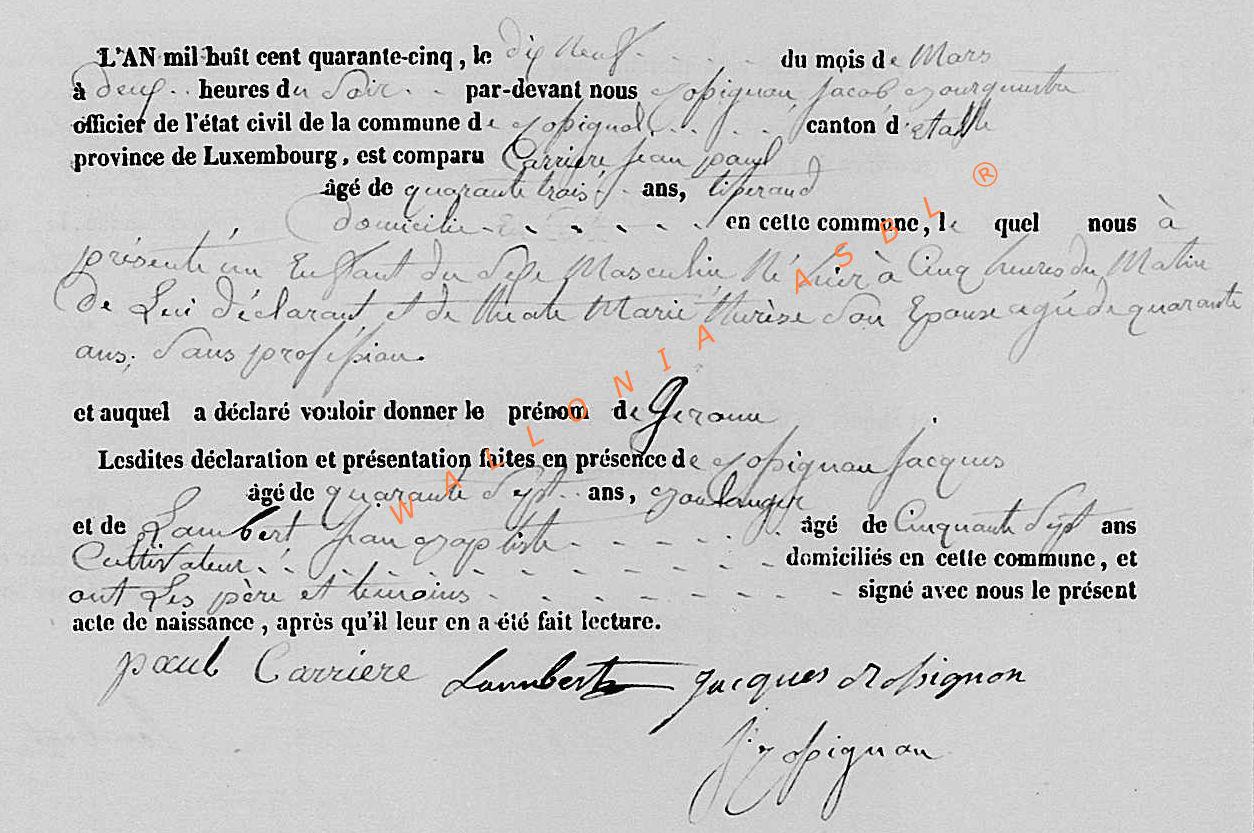 L'AN mil huit cent quarante-cinq, le dix Neuf du mois de Mars
à deux heures du Soir par-devant nous Rossignon Jacob Bourguemestre
officier de l'état civil de la commune de Rossignol canton d'etalle
province de Luxembourg, est comparu Carriere jean paul
âgé de quarante trois ans, tiserand
domicilié en cette commune, le quel nous à
présenté un Enfant du Sexe Masculin, Né hier à Cinq heures du Matin
de Lui déclarant et de Marie thérèse Son Epouse agée de quarante
ans, Sans profession.
et auquel a déclaré vouloir donner le prénom de
Lesdites déclaration et présentation faites en présence de Rossignon Jacques
âgé de quarante Sept ans, Boulanger
et de Lambert Jean Baptiste âgé de Cinquante Sept ans
Cultivateur domiciliés en cette commune, et
ont Les père et temoins signé avec nous le présent
acte de naissance, après qu'il leur en a été fait lecture.
paul Carriere Lambert Jacques Rossignon
J Rossignon
WALLONIA ASBL ®